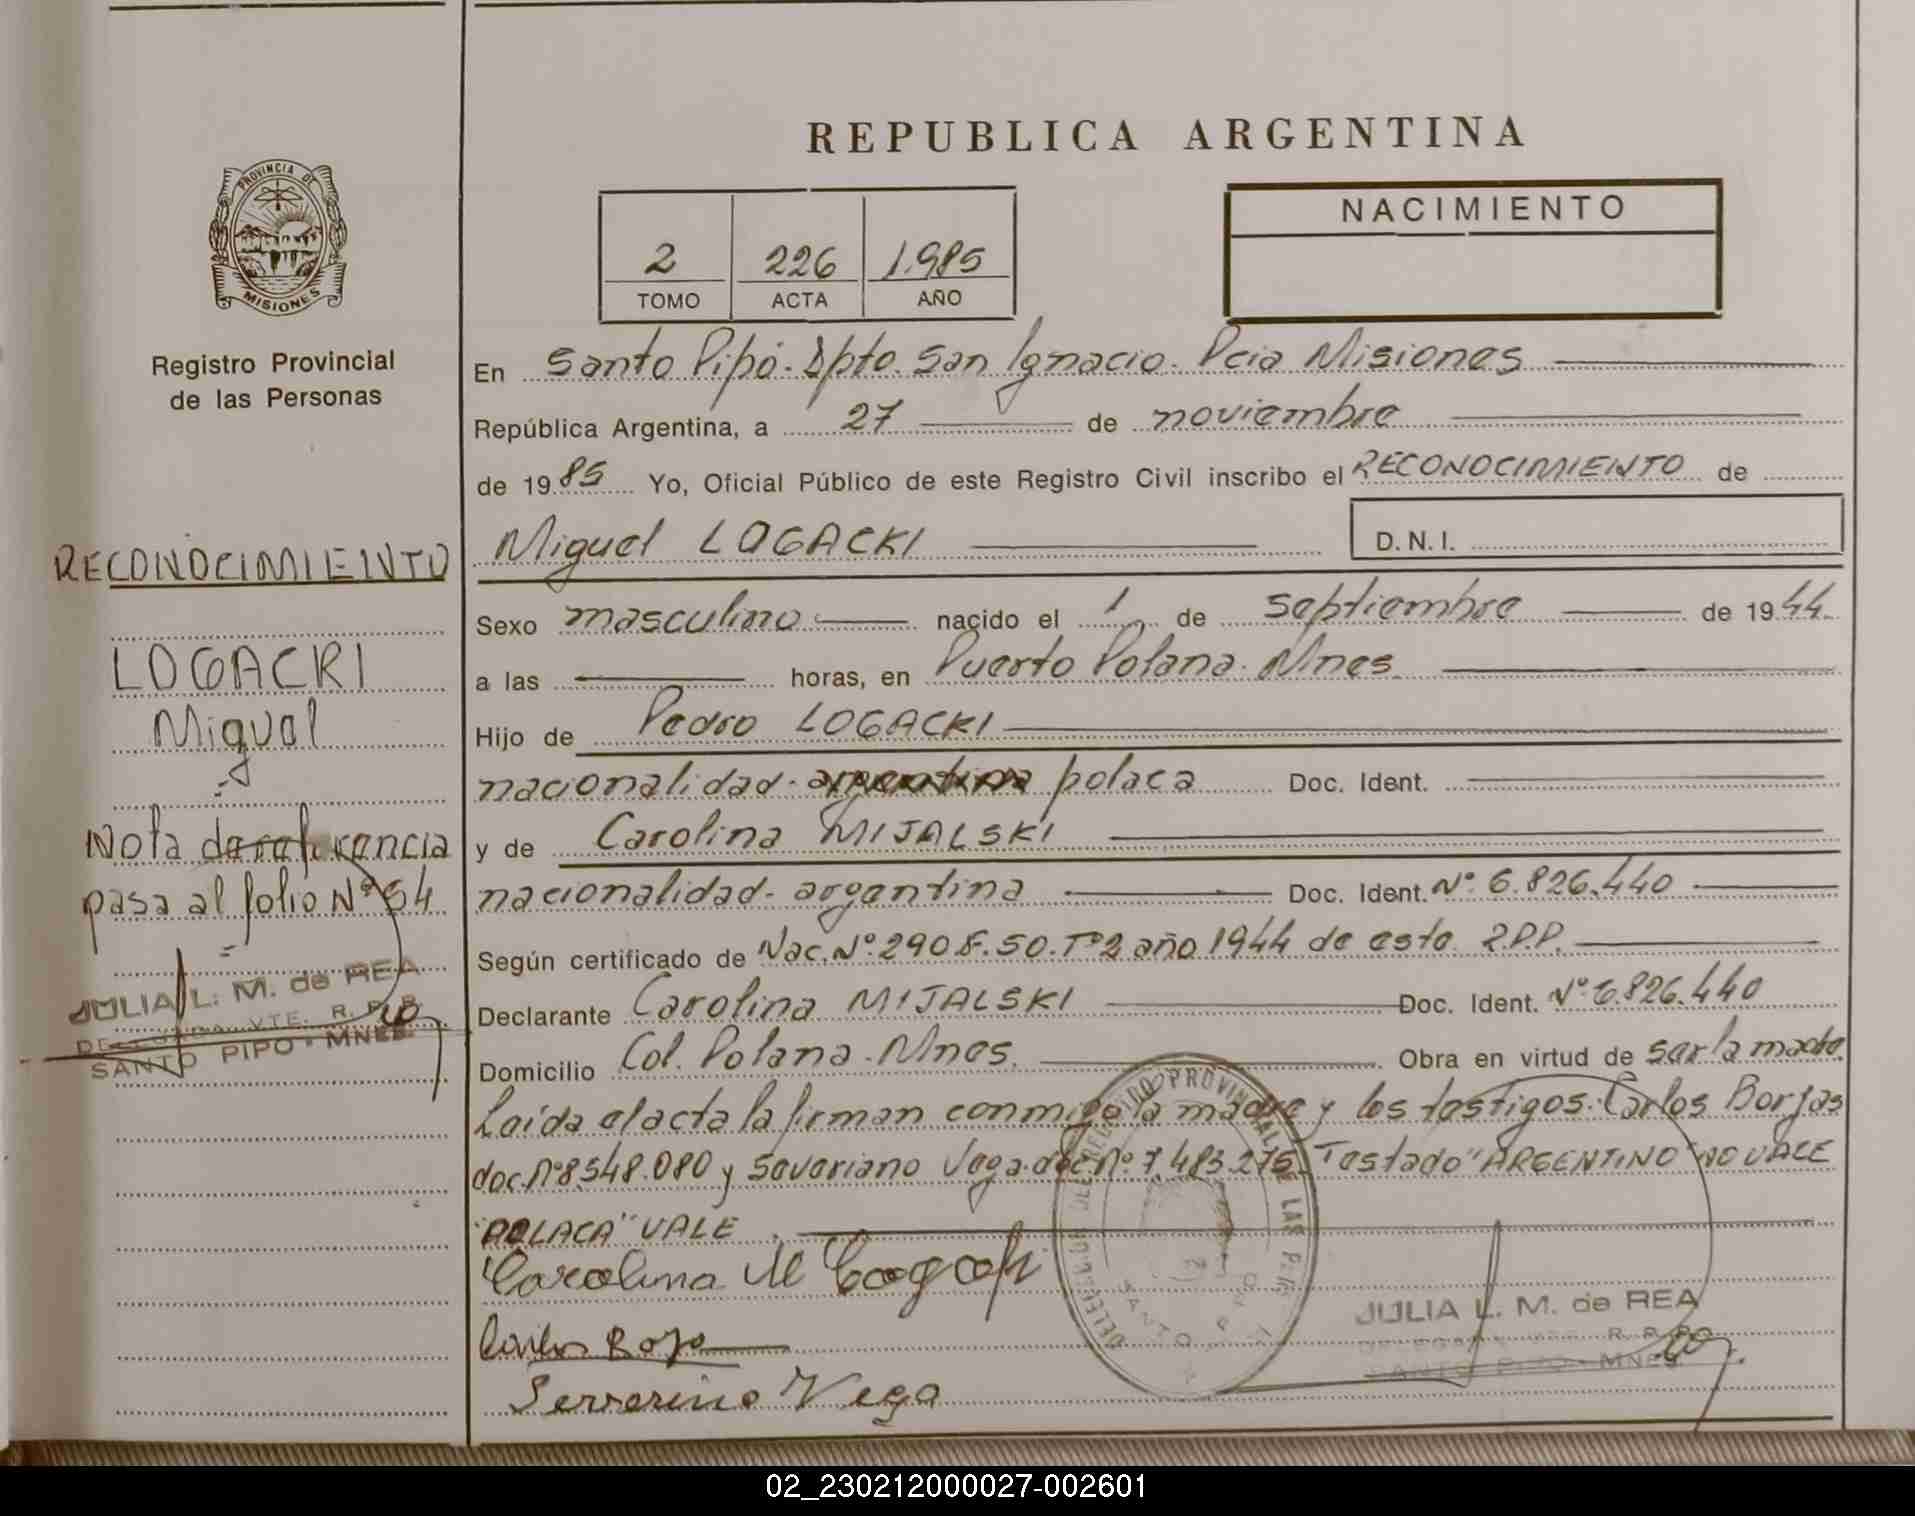 REPUBLICA ARGENTINA
PROVINCIA DE
MISIONES
Registro Provincial
de las Personas
2 226 1.985
TOMO ACTA AÑO
NACIMIENTO
En Santo Pipó. Dpto. San Ignacio. Pcia Misiones
República Argentina, a 27 de noviembre
de 1985 Yo, Oficial Público de este Registro Civil inscribo el RECONOCIMIENTO de
Miguel LOGACKI D.N.I.
Sexo masculino nacido el 1 de septiembre de 1944.
a las horas, en Puerto Polana. Mnes.
Hijo de Pedro LOGACKI
nacionalidad - argentina polaca Doc. Ident.
y de Carolina MIJALSKI
nacionalidad - argentina Doc. Ident. Nº 6.826.440
Según certificado de Nac. Nº 290 F. 50. Tº 2 año 1944 de esta R.P.P.
Declarante Carolina MIJALSKI Doc. Ident. Nº 6.826.440
Domicilio Col. Polana. Mnes. Obra en virtud de ser la madre
Leída el acta la firman conmigo la madre y los testigos: Carlos Borjas
doc. Nº 8.548.080 y Severiano Vega. doc. Nº 7.483.275. Testado "ARGENTINO" NO VALE
"POLACA" VALE.
Carolina M
Carlos
Severino Vega
JULIA L. M. de REA
R. P. P.
SANTO PIPO - MNES.
RECONOCIMIENTO
LOGACKI
Miguel
Nota de referencia
pasa al folio Nº 64
JULIA L. M. de REA
VTE. R. P. P.
SANTO PIPO - MNES.
02_230212000027-002601